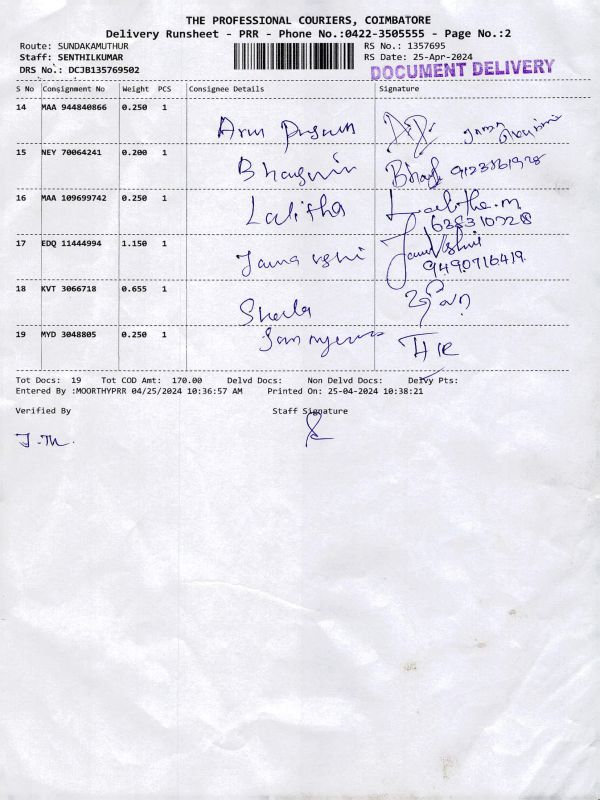 THE PROFESSIONAL COURIERS, COIMBATORE
Delivery Runsheet - PRR - Phone No.:0422-3505555 - Page No.:2
Route: SUNDAKAMUTHUR RS No.: 1357695
Staff: SENTHILKUMAR RS Date: 25-Apr-2024
DRS No.: DCJB135769502 DOCUMENT DELIVERY
S No Consignment No Weight PCS Consignee Details Signature
14 MAA 944840866 0.250 1
Arun
15 NEY 70064241 0.200 1
16 MAA 109699742 0.250 1
Lalitha Lalitha.m
17 EDQ 11444994 1.150 1
9490716419
18 KVT 3066718 0.655 1
Sheela
19 MYD 3048805 0.250 1
Tot Docs: 19 Tot COD Amt: 170.00 Delvd Docs: Non Delvd Docs: Delvy Pts:
Entered By :MOORTHYPRR 04/25/2024 10:36:57 AM Printed On: 25-04-2024 10:38:21
Verified By Staff Signature